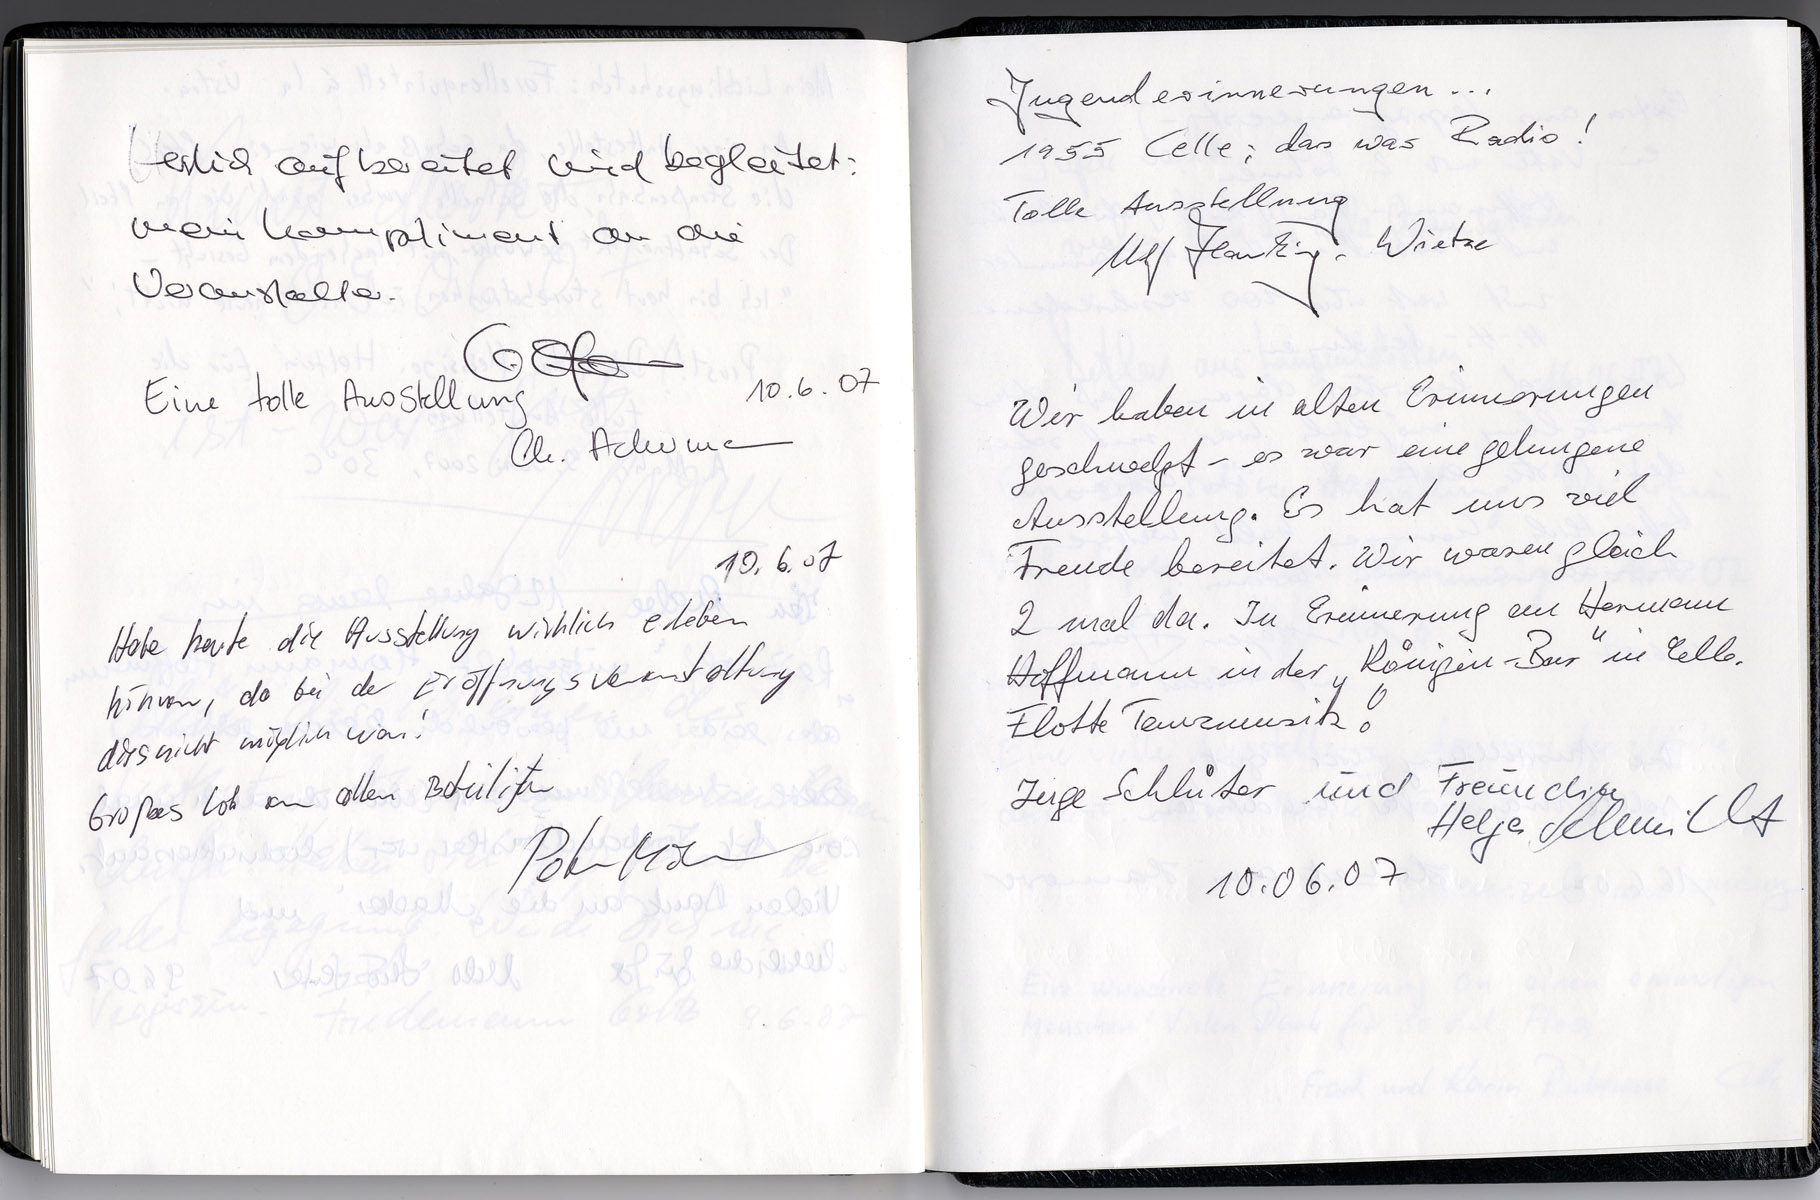 aufbereitet und begleitet:
mein Kompliment an die
Veranstalter.
Eine tolle Ausstellung 10.6.07
Ch.
10.6.07
Habe heute die Ausstellung wirklich erleben
können, da bei der Eröffnungsveranstaltung
dies nicht möglich war!
Großes Lob an allen Beteiligten
Peter
Jugenderinnerungen...
1955 Celle; das war Radio!
Tolle Ausstellung
Ulf Wietze
Wir haben in alten Erinnerungen
geschwelgt – es war eine gelungene
Ausstellung. Es hat uns viel
Freude bereitet. Wir waren gleich
2 mal da. In Erinnerung an Hermann
Hoffmann in der „Königin-Bar" in Celle.
Flotte Tanzmusik!
Inge Schlüter und Freundin
Helga Schmidt
10.06.07